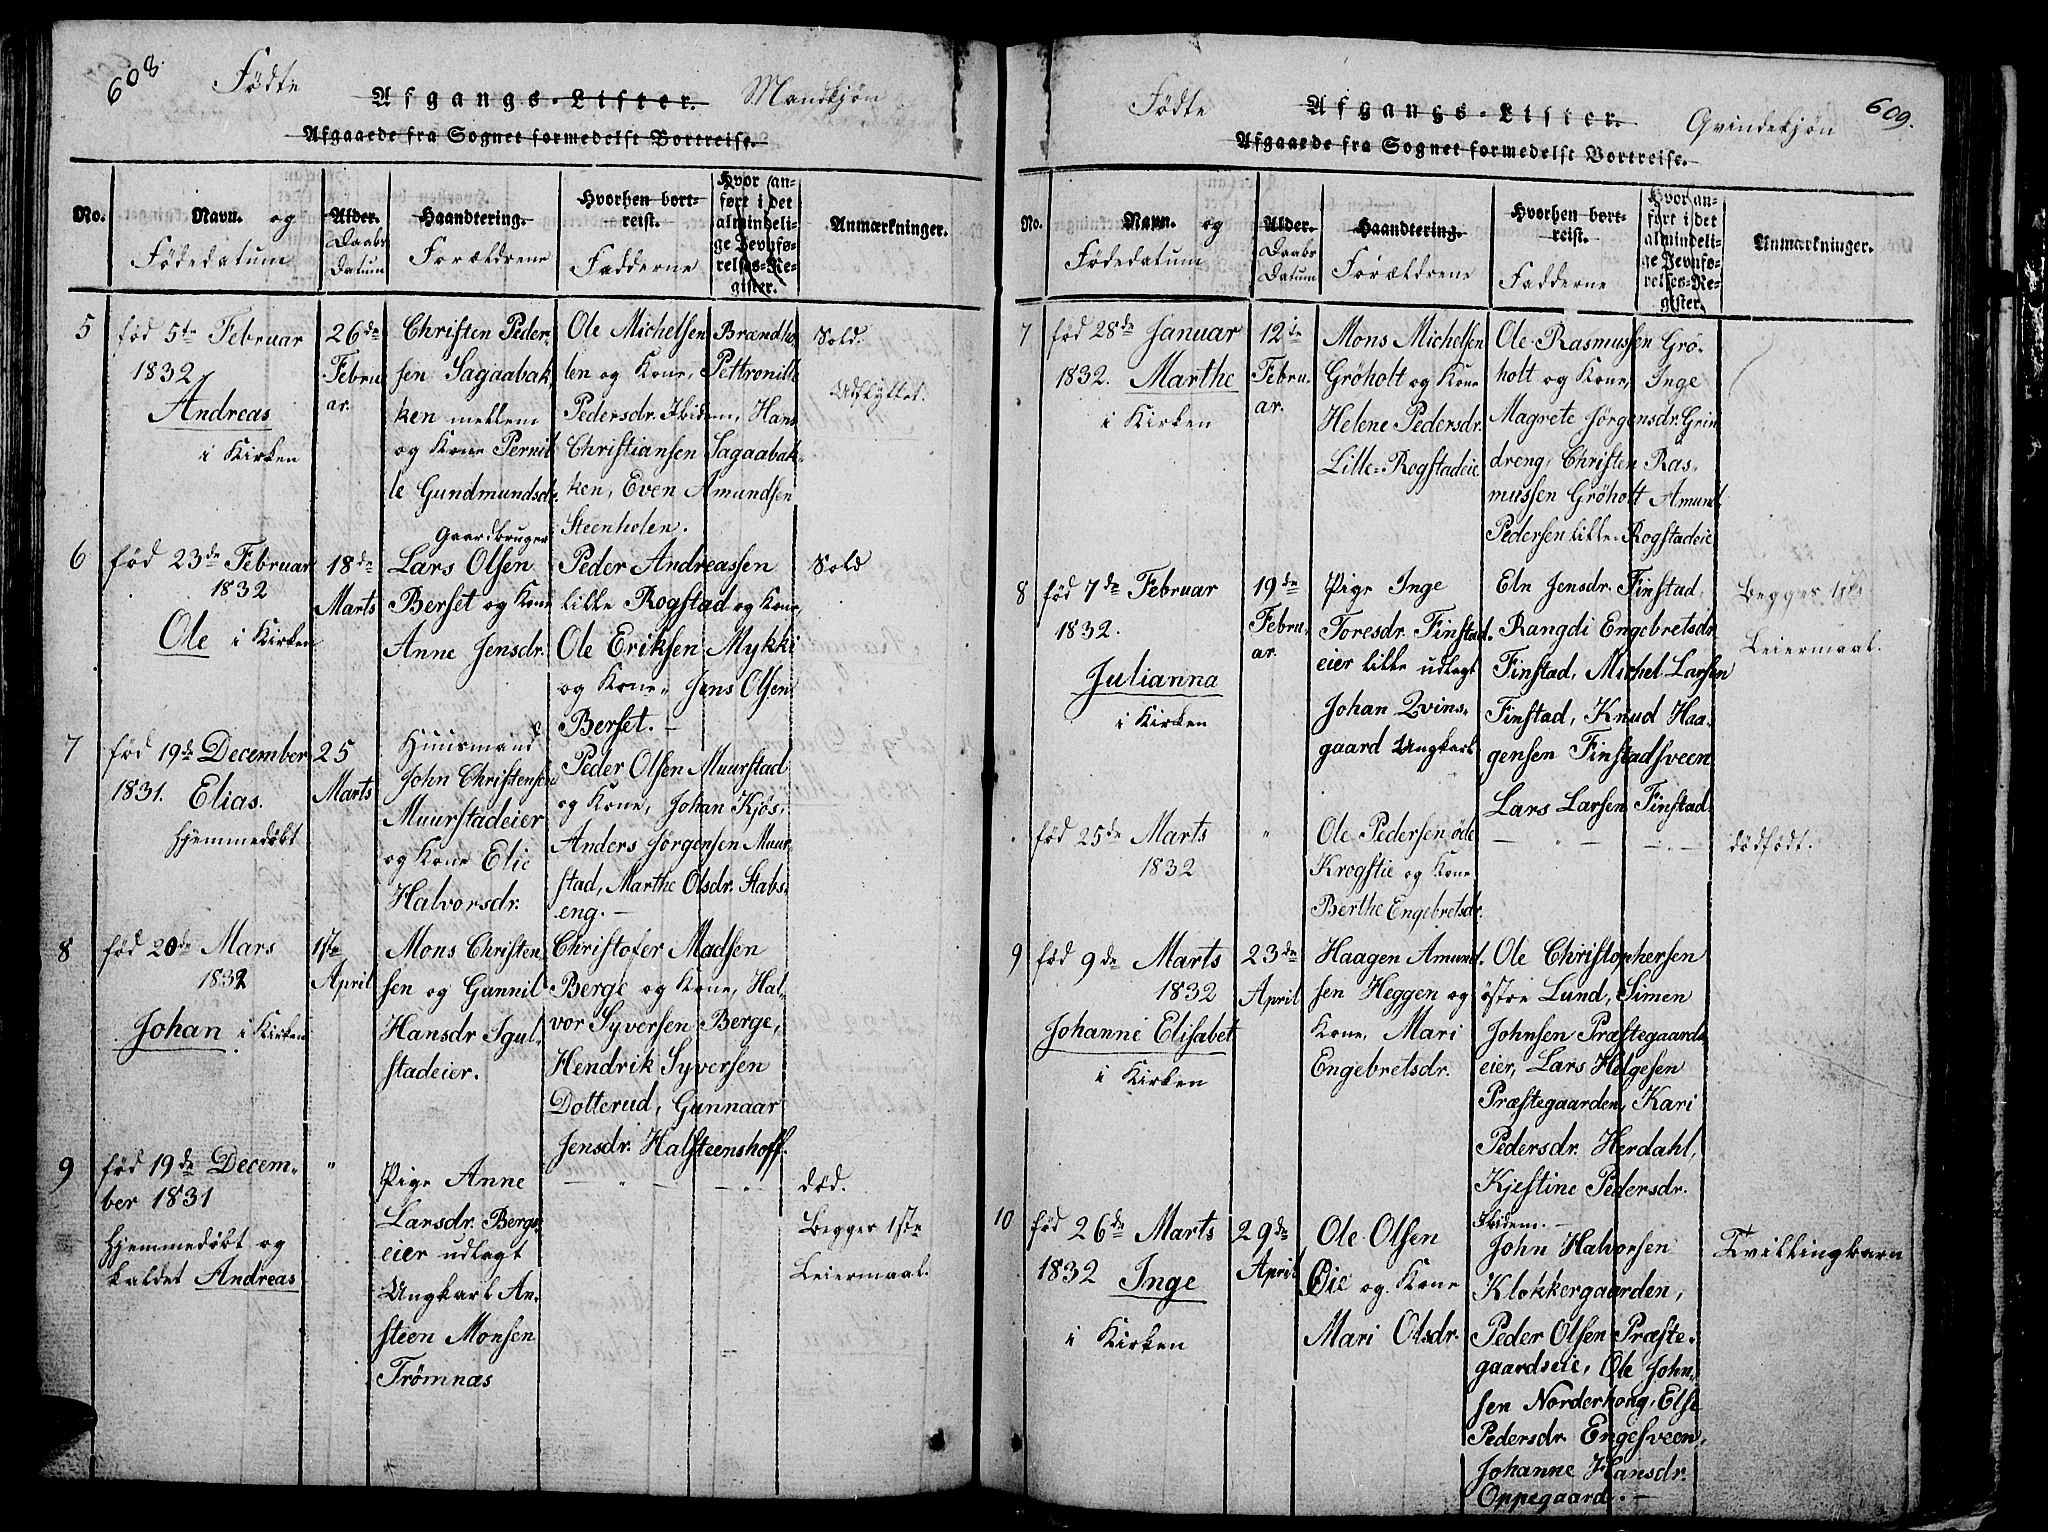 608.
Födte
Afgangs-Lister.
Mandkjøn
Afgaaede fra Sognet formedelst Bortreise.
No.
Navn. og
Födedatum
Alder.
Daabs
Datum
Haandtering.
Forældrene
Hvorhen bort-
reist.
Fadderne
Hvor an-
ført i det
almindeli-
ge Jevnfø-
relses-Re-
gister.
Anmærkninger.
5
fød 5te Februar
1832
Andreas
i Kirken
26de
Febru
ar.
Christen Peder-
sen Sagaabak
ken mellem
og Kone Pernil
le Gundmundsdr.
Ole Michelsen Brændho-
len og Kone, Pettronille
Pedersdr. Ibidem, Hans
Christiansen Sagaabak-
ken, Even Amundsen
Steenholen.
Sold.
Udflyttet.
6
fød 23de Februar
1832
Ole i Kirken
18de
Marts
Gaardbruger
Lars Olsen
Berset og Kone
Anne Jensdr.
Peder Andreassen
lille Rogstad og Kone,
Ole Eriksen Mykki
og Kone, Jens Olsen
Berset.
Sold
7
fød 19de December
1831. Elias.
Hjemmedøbt
25
Marts
Huusmand
John Christensen
Muurstadeier
og Kone Elie
Halvorsdr.
Peder Olsen Muurstad
og Kone, Johan Kjøs,
Anders Jørgensen Muur-
stad, Marthe Olsdr. Stabs-
eng.
8
fød 20de Mars
1832
Johan i Kirken
1ste
April
Mons Christen
sen og Gunnil
Hansdr Igul-
stadeier.
Christofer Madsen
Berge og Kone, Hal-
vor Syversen Berge,
Hendrik Syversen
Dotterud, Gunnaar
Jensdr. Halsteenshoff.
9
fød 19de Decem-
ber 1831
Hjemmedøbt og
kaldet Andreas
"
Pige Anne
Larsdr. Berge-
eier udlagt
Ungkarl An-
steen Monsen
Trömnas
død.
Begges 1ste
Leiermaal.
609.
Födte
Afgangs-Lister.
Qvindekjøn
Afgaaede fra Sognet formedelst Bortreise.
No.
Navn. og
Födedatum
Alder.
Daabs
Datum
Haandtering.
Forældrene
Hvorhen bort-
reist.
Fadderne
Hvor an-
ført i det
almindeli-
ge Jevnfø-
relses-Re-
gister.
Anmærkninger.
7
fød 28de Januar
1832. Marthe
i Kirken
12te
Febru-
ar.
Mons Michelsen
Gröholt og Kone
Helene Pedersdr.
Lille-Rogstadeie
Ole Rasmussen Grö-
holt og Kone, Inge
Magrete Jörgensdr. Grin
dreng, Christen Ras-
mussen Gröholt Amund
Pedersen Lille-Rogstadeie
8
fød 7de Februar
1832.
Julianna
i Kirken
19de
Febru-
ar.
Pige Inge
Toresdr. Finstad-
eier lille udlagt
Johan Qvins-
gaard Ungkarl
Eln Jensdr. Finstad,
Rangdi Engebretsdr.
Finstad, Michel Larsen
Finstad, Knud Haa-
gensen Finstadsveen
Lars Larsen Finstad
Begges 1ste
Leiermaal.
fød 25de Marts
1832
"
Ole Pedersen øde
Krogstie og Kone
Berthe Engebretsdr.
dödfödt.
9
fød 9de Marts
1832
Johanne Elisabet
i Kirken
23de
April
Haagen Amund-
sen Heggen og
Kone, Mari
Engebretsdr.
Ole Christophersen
östre Lund, Simen
Johnsen Præstegaards
eier, Lars Helgesen
Præstegaarden, Kari
Pedersdr. Herdahl,
Kjestine Pedersdr.
Ibidem.
10
fød 26de Marts
1832 Inge
i Kirken
29de
April
Ole Olsen
Øie og Kone
Mari Olsdr.
John Halvorsen
Klokkergaarden,
Peder Olsen Præste-
gaardseie, Ole John-
sen Norderhong, Else
Pedersdr. Engesveen,
Johanne Hansdr.
Oppegaard.
Tvillingbarn